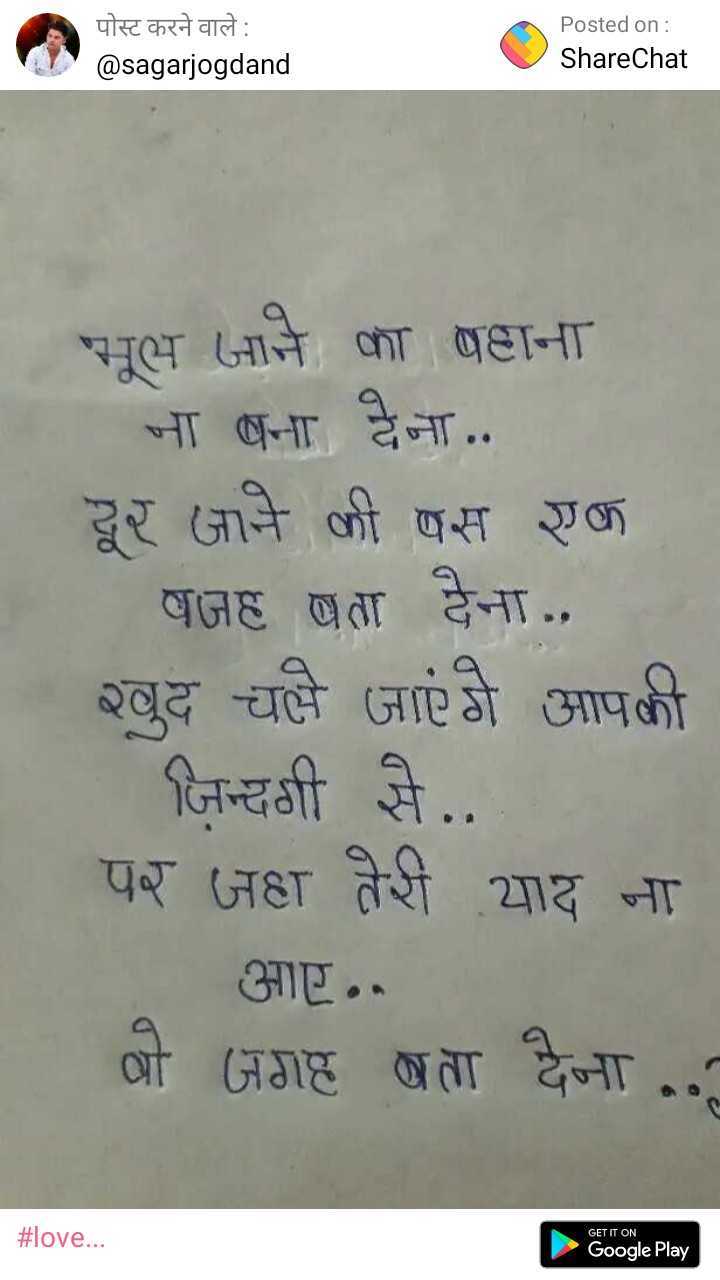 पोस्ट करने वाले :
@sagarjogdand
Posted on :
ShareChat
भूल जाने का बहाना
ना बना देना..
दूर जाने की बस एक
बजह बता देना..
खुद चले जाएंगे आपकी
ज़िन्दगी से..
पर जहा तेरी याद ना
आए..
बो जगह बता देना..
#love...
GET IT ON
Google Play